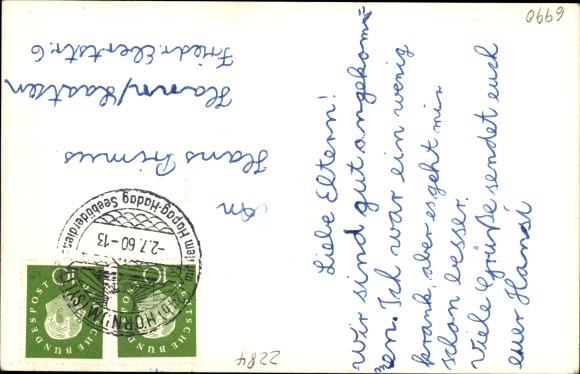 Liebe Eltern!
Wir sind gut angekomm=
en. Ich war ein wenig
krank, aber es geht mir
schon besser.
Viele Grüße sendet euch
euer Hansi
An
Hans Primus
Hann/Laatzen
Friedr. Ebertstr. 6
dem Hapag-Hadag Seebäderdienst
-2.7.60-13
DEUTSCHE BUNDESPOST
DEUTSCHE BUNDESPOST
10
2284
6990